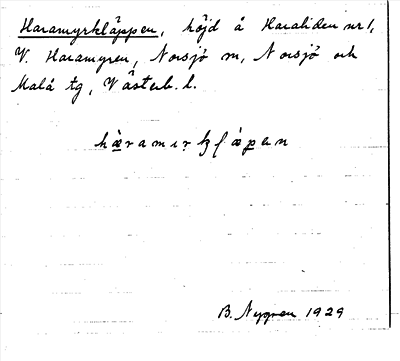 Haramyrkläppen, höjd å Haraliden nr 1,
V. Haramyren, Norsjö sn, Norsjö och
Malå tg, Västerb. l.
B. Nygren 1929